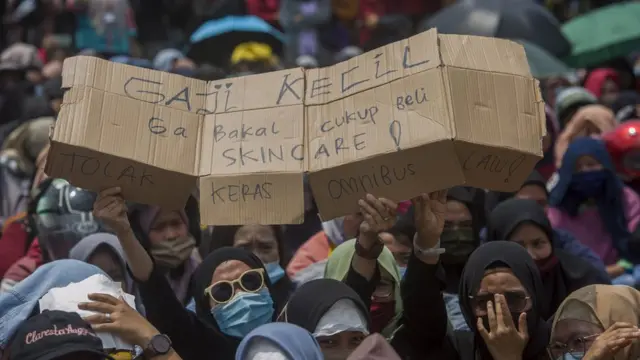 GAJI KECIL
Ga Bakal cukup Beli
SKINCARE!
TOLAK KERAS OMNIBUS LAW!
Clarestha+Augh